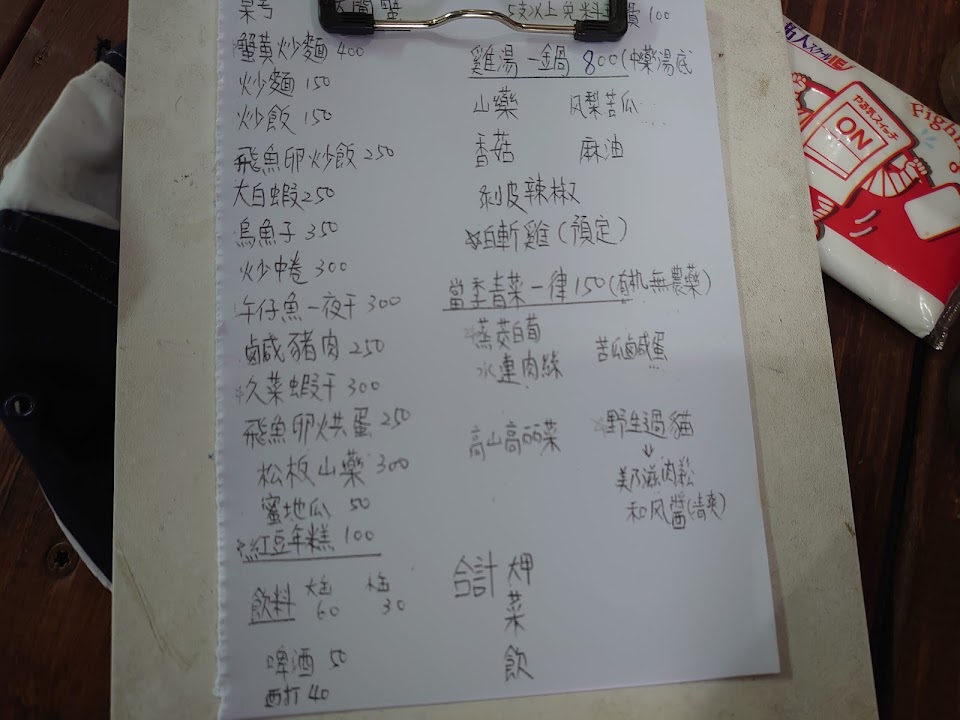 桌号 大閘蟹
5支以上免料理費100
蟹黃炒麵 400
炒麵 150
炒飯 150
飛魚卵炒飯 250
大白蝦 250
烏魚子 350
炒中卷 300
午仔魚一夜干 300
鹹豬肉 250
久菜蝦干 300
飛魚卵烘蛋 250
松板山藥 300
蜜地瓜 50
紅豆年糕 100
飲料 大缶 小缶
60 30
啤酒 50
西打 40
雞湯一鍋 800(中藥湯底
山藥 风梨苦瓜
香菇 麻油
剝皮辣椒
白斬雞(預定)
當季青菜一律150(有机無農藥)
蒸茭白荀
水連肉絲 苦瓜鹹蛋
高山高麗菜 野生過貓
美乃滋肉松
和风醬(清爽)
合計 大呷
菜
飲
拓人
やる気スイッチ
ON